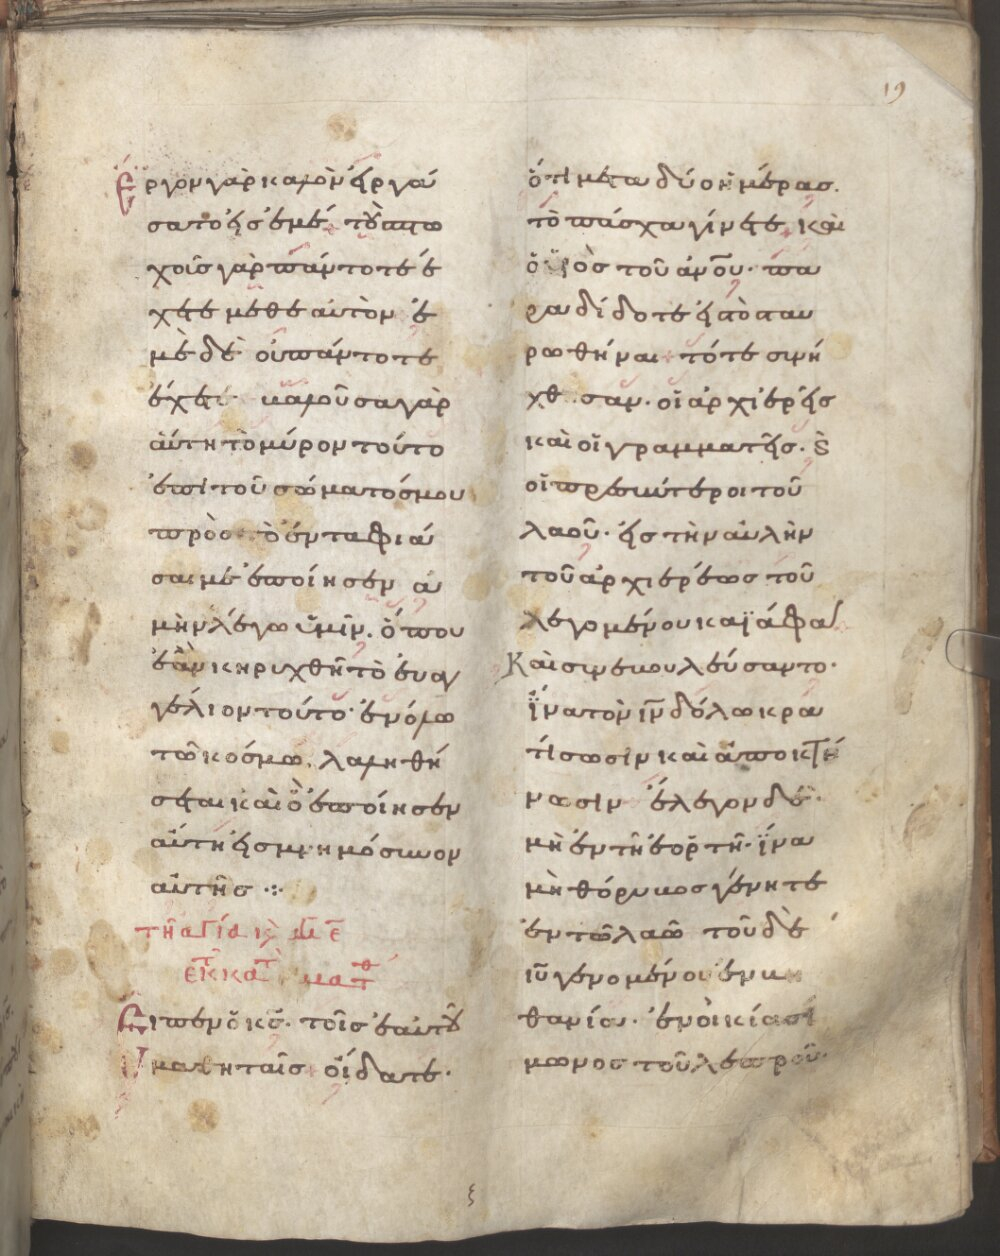 19
Ἔργον γὰρ καλὸν ἐιργά
σατο εἰς ἐμέ· τοὺς πτω
χοὺς γὰρ πάντοτε ἔ
χετε μεθ ἑαυτῶν ἐ
μὲ δὲ οὐ πάντοτε
ἔχετε· βαλοῦσα γὰρ
ἁύτη τὸ μύρον τοῦτο
ἐπὶ τοῦ σώματός μου
πρὸς τὸ ἐνταφιά
σαι με ἐποίησεν ἀ
μὴν λέγω ὑμῖν. ὅπου
ἐὰν κηρυχθῆ τὸ ἐυαγ
γέλιον τοῦτο· ἐν ὅλω
τῶ κόσμω, λαληθή
σεται καὶ ὃ ἐποίησεν
αὕτη εἰς μνημόσυνον
αὐτῆς ·:·
τῆ ἁγία κ̀ μ̅ ε̅
ἐκ κατ ματθ
Εἶπεν ὁ κς̅· τοῖς ἑαυτοῦ
μαθηταῖς οἴδατε·
ὅτι μετα δύο ἡμέρας.
τὸ πάσχα γίνετε, καὶ
ὁ ὑιὸς τοῦ ἀνο̅υ· πα
ραδίδοτε εἰς τὸ σταυ
ρωθῆναι τότε συνή
χθησαν· οἱ ἀρχιερεῖς
καὶ οἱ γραμματεῖς. ϗ̀
οἱ πρεσβύτεροι τοῦ
λαοῦ· εἰς τὴν αὐλὴν
τοῦ ἀρχιερέως τοῦ
λεγομένου καϊάφα
Καὶ συνεβουλεύσαντο·
ἵνα τὸν ι̅ν δόλω κρα
τίσωσιν καὶ ἀποκτέ
νωσιν ἔλεγον δέ·
μὴ ἐν τῆ ἑορτῆ· ἵνα
μὴ θόρυβος γένητε
ἐν τῶ λαῶ τοῦ δὲ
ι̅υ γενομένου ἐν βη
θανία· ἐν οἰκία σί
μωνος τοῦ λεπροῦ·
ξ